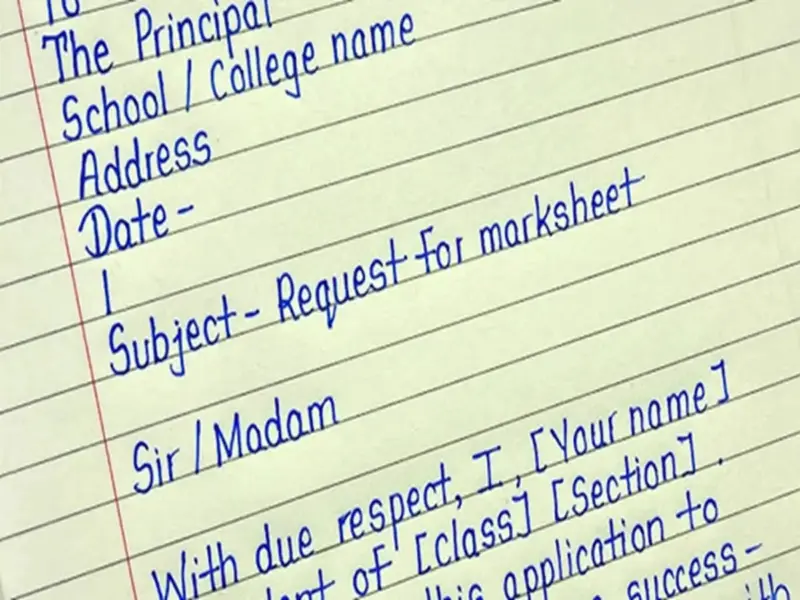 To
The Principal
School / College name
Address
Date -
Subject - Request for marksheet
Sir / Madam
With due respect, I, [Your name]
of [class] [Section].
application to
success -